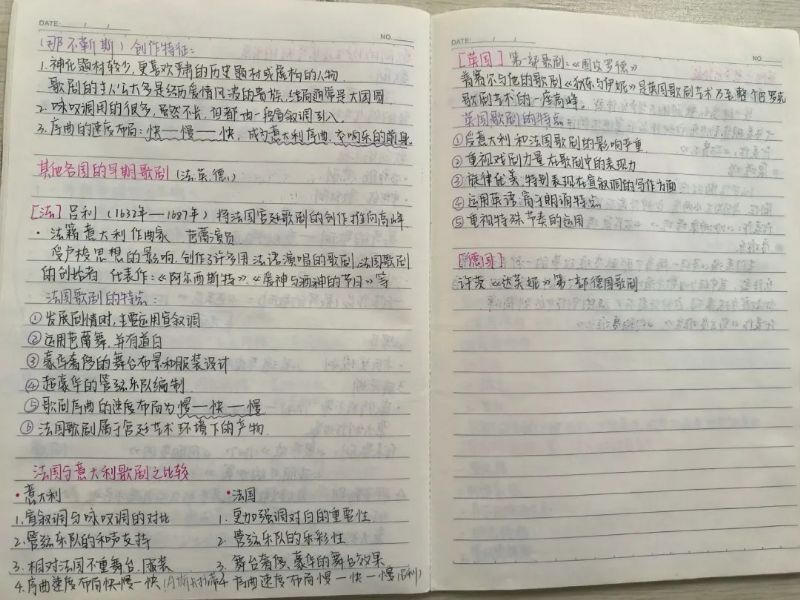 DATE
NO.
(那不勒斯)创作特征:
1. 神化题材较少,更喜欢严肃的历史题材或虚构的人物
歌剧的主人公大多是经历爱情风波的贵族,结局通常是大团圆
2. 咏叹调用的很多,虽然不长,但都由一段宣叙调引入
3. 序曲的速度布局:快—慢—快,成为意大利序曲,交响乐的前身
其他各国的早期歌剧(法.英.德.)
[法] 吕利(1632年—1687年) 将法国宫廷歌剧的创作推向高峰
· 法籍意大利作曲家 芭蕾演员
受卢梭思想的影响,创作了许多用法语演唱的歌剧,法国歌剧
的创始者. 代表作:《阿尔西斯特》、《房神与酒神的节日》等
法国歌剧的特点:
① 发展剧情时,主要运用宣叙调
② 运用芭蕾舞,并有道白
③ 豪华奢侈的舞台布景和服装设计
④ 超豪华的管弦乐队编制
⑤ 歌剧序曲的速度布局为慢—快—慢
⑥ 法国歌剧属于宫廷艺术环境下的产物
法国与意大利歌剧之比较
· 意大利
1. 宣叙调与咏叹调的对比
2. 管弦乐队的和声支持
3. 相对法国不重舞台,服装
4. 序曲速度布局快-慢-快
· 法国
1. 更加强调对白的重要性
2. 管弦乐队的乐彩性
3. 舞台奢侈、豪华的舞台效果
4. 序曲速度布局慢—快—慢(吕利)
DATE
NO
[英国] 第一部歌剧:《围攻罗德》
普赛尔与他的歌剧《狄东与伊妮》是英国歌剧艺术乃至整个巴罗克
歌剧艺术的一座高峰.
英国歌剧的特点:
① 受意大利和法国歌剧的影响严重
② 重视戏剧力量在歌剧中的表现力
③ 旋律优美,特别表现在宣叙调的写作方面
④ 运用英语,富于朗诵特点
⑤ 重视特殊节奏的运用
[德国]
许茨《达芙妮》第一部德国歌剧